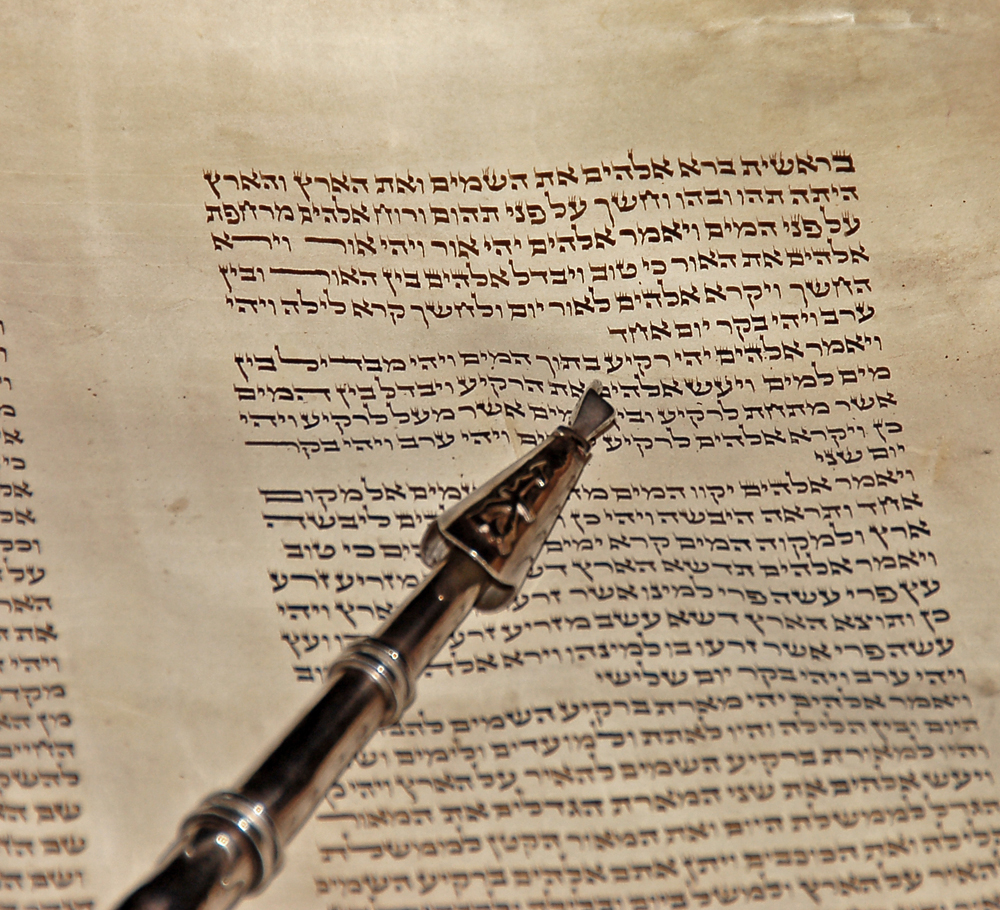 בראשית ברא אלהים את השמים ואת הארץ והארץ
היתה תהו ובהו וחשך על פני תהום ורוח אלהים מרחפת
על פני המים ויאמר אלהים יהי אור ויהי אור וירא
אלהים את האור כי טוב ויבדל אלהים בין האור ובין
החשך ויקרא אלהים לאור יום ולחשך קרא לילה ויהי
ערב ויהי בקר יום אחד
ויאמר אלהים יהי רקיע בתוך המים ויהי מבדיל בין
מים למים ויעש אלהים את הרקיע ויבדל בין המים
אשר מתחת לרקיע אשר מעל לרקיע ויהי
כן ויקרא אלהים לרקיע ויהי ערב ויהי בקר
יום שני
ויאמר אלהים יקוו המים אל מקום
אחד ותראה היבשה ויהי כן ליבשה
ארץ ולמקוה המים קרא ימים כי טוב
ויאמר אלהים תדשא הארץ מזריע זרע
עץ פרי עשה פרי למינו אשר ויהי
כן ותוצא הארץ דשא עשב מזריע זרע ועץ
עשה פרי אשר זרעו בו למינהו וירא
ויהי ערב ויהי בקר יום שלישי
ויאמר אלהים יהי מארת ברקיע השמים
היום ובין הלילה והיו לאתת ולמועדים ולימים
והיו למאורת ברקיע השמים להאיר על הארץ ויהי
ויעש אלהים את שני המארת הגדלים את המאור
לממשלת היום ואת המאור הקטן לממשלת
ואת הכוכבים ויתן אתם אלהים ברקיע השמים
על הארץ ולמשל